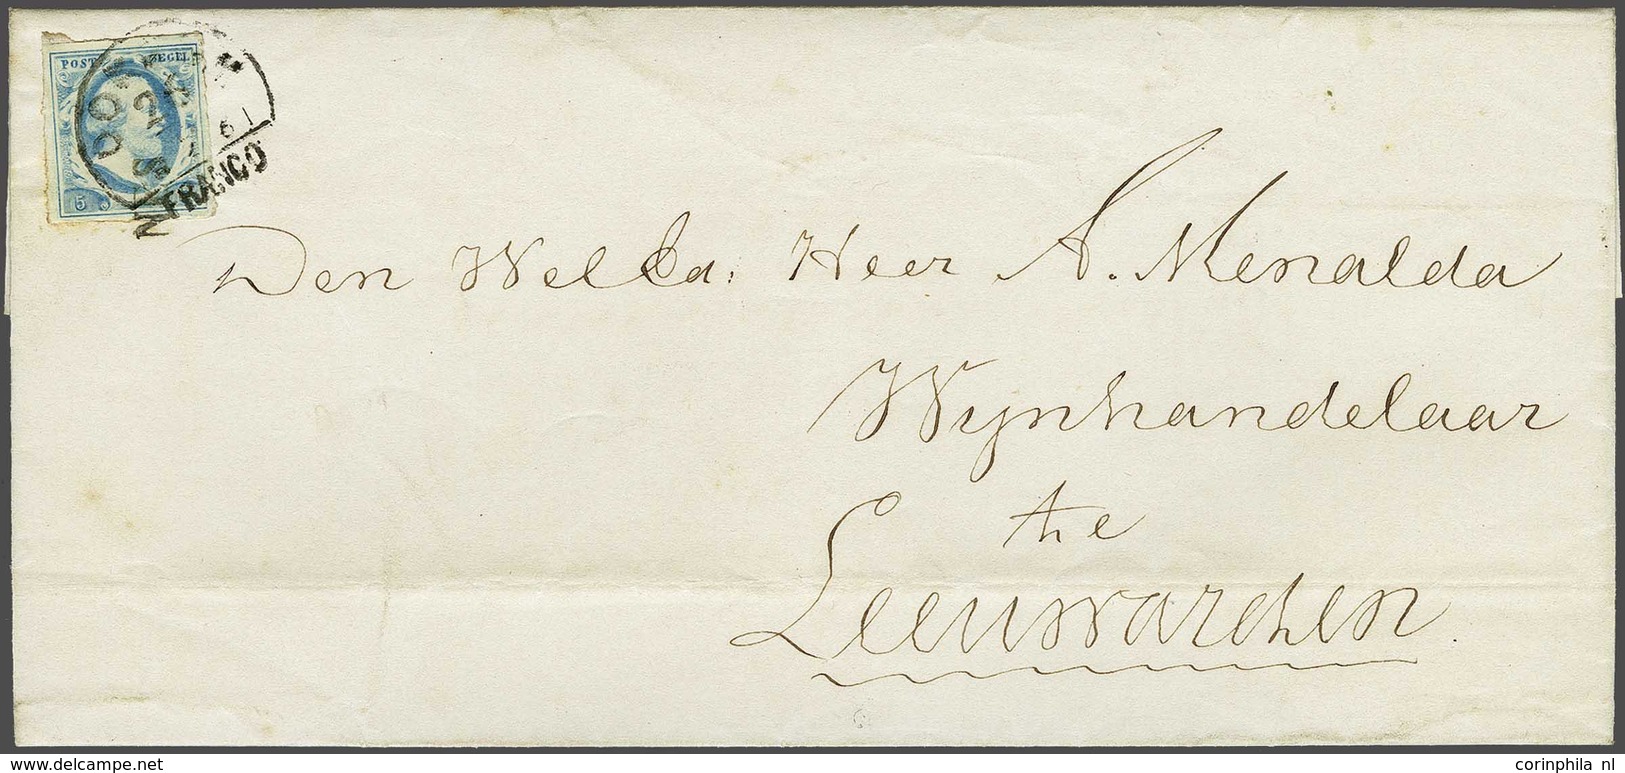 POST ZEGEL
61
FRANCO
5
Den WelEd: Heer A. Menalda
Wynhandelaar
te
Leeuwarden.
www.delcampe.net
corinphila nl